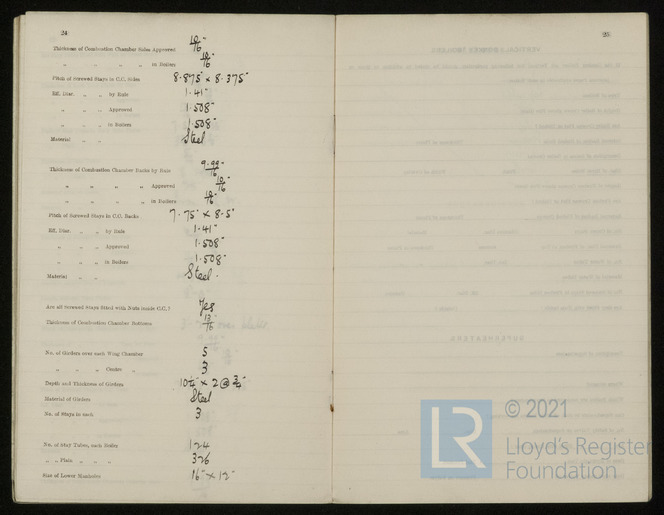 24
Thickness of Combustion Chamber Sides Approved 10/16"
" " " " in Boilers 10/16"
Pitch of screwed Stays in C.C. Sides 8.875" x 8.375"
Eff. Diar. " " by Rule 1.41"
" " Approved 1.508"
" " in Boilers 1.508"
Material " " Steel
Thickness of Combustion Chamber Backs by Rule 9.99/16"
" " " " Approved 10/16"
" " " " in Boilers 10/16"
Pitch of screwed Stays in C.C. Backs 7.75" x 8.5"
Eff. Diar. " " by Rule 1.41"
" " Approved 1.508"
" " in Boilers 1.508"
Material " " Steel.
Are all screwed Stays fitted with Nuts inside C.C.? Yes
Thickness of Combustion Chamber Bottoms 13/16"
No. of Girders over each Wing Chamber 5
" " " Centre " 3
Depth and Thickness of Girders 10¼" x 2 @ ¾"
Material of Girders Steel
No. of Stays in each 3
No. of Stay Tubes, each Boiler 124
" " Plain " " " 326
Size of Lower Manholes 16" x 12"
25
LR
© 2021
Lloyd's Register
Foundation